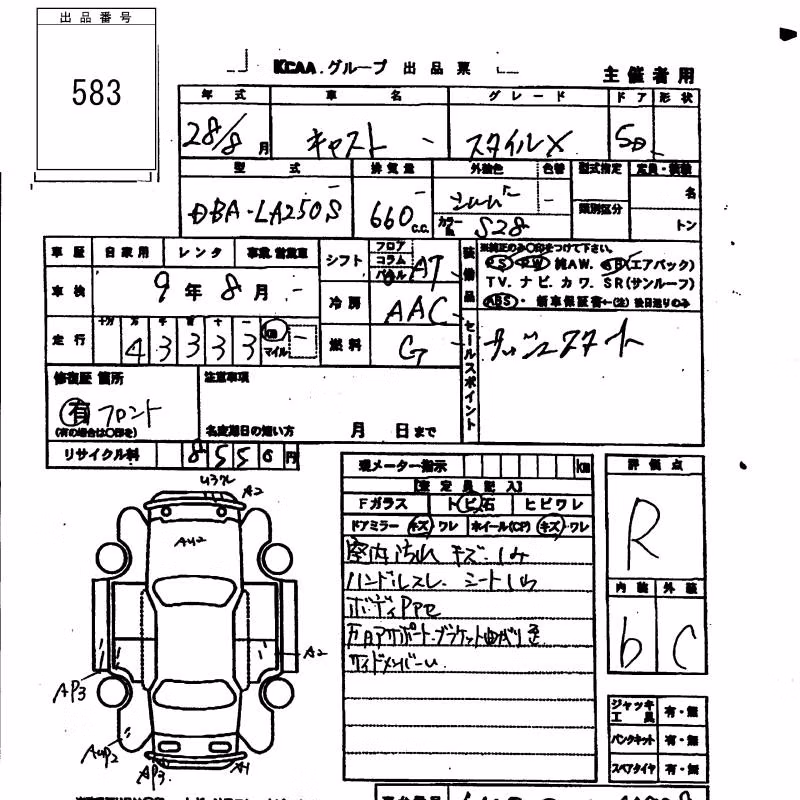 出品番号
583
KCAA.グループ 出品票
主催者用
年式 車名 グレード ドア 形状
28/8月 キャスト スタイルX 5D
型式 排気量 外装色 色替 型式指定 定員・積載
DBA-LA250S 660c.c. カラー S28 類別区分 名
トン
車歴 自家用 レンタ 事業.営業車
シフト フロア コラム パネル AT
装備品 ※純正のみ○印をつけて下さい。
PS PW 純AW. AB(エアバック)
TV.ナビ.カワ.SR(サンルーフ)
ABS・新車保証書←(注)後日送りのみ
車検 9年8月
冷房 AAC
走行 十万 万 千 百 十 一
43333 km マイル
燃料 G
セールスポイント
修復歴 箇所 注意事項
有 フロント
(有の場合は○印を)
名変期日の短い方 月 日まで
リサイクル料 8550円
現メーター指示 km
評価点
R
【査定員記入】
Fガラス トビ石 ヒビワレ
ドアミラー キズ・ワレ ホイール(CP) キズ・ワレ
室内汚れ キズ・シミ
ハンドルスレ シート
ボディ
サイドメンバー
内装 外装
b C
ジャッキ 工具 有・無
パンクキット 有・無
スペアタイヤ 有・無
A2
AU2
A2
AP3
AUP2
AP3
A1